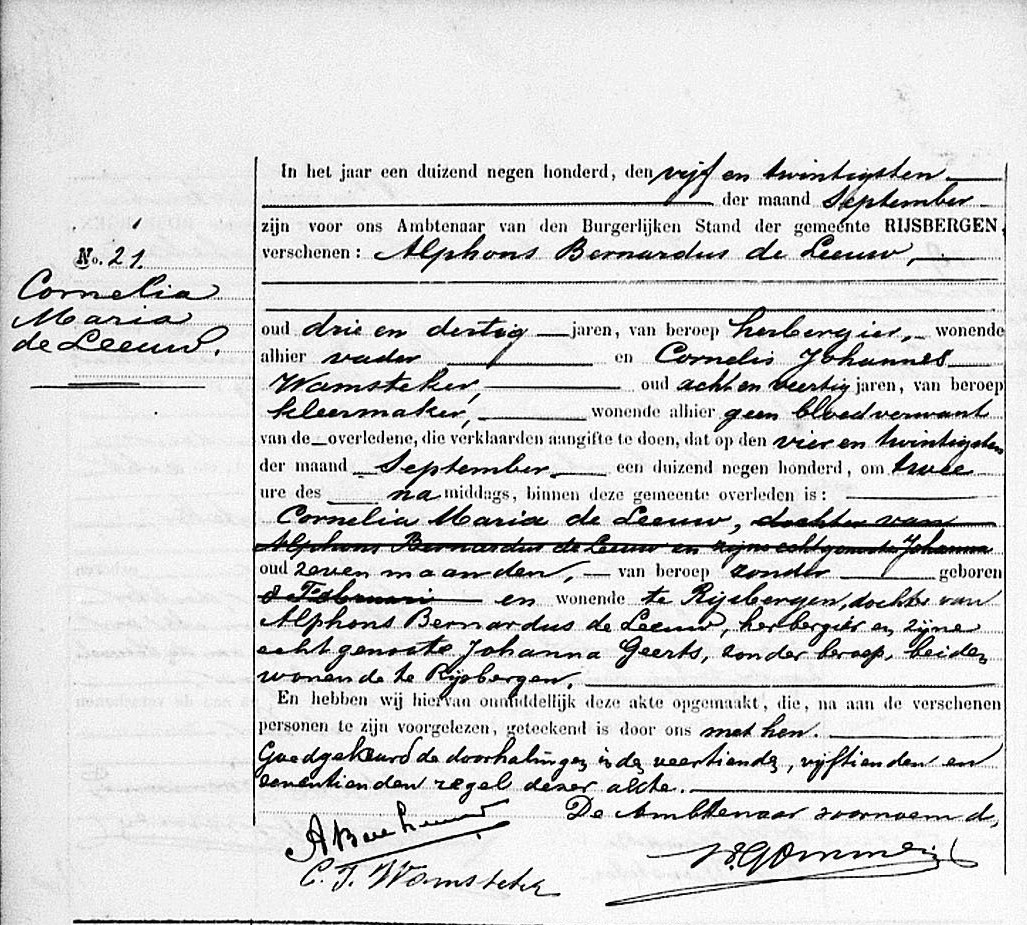 No. 21.
Cornelia
Maria
de Leeuw.
In het jaar een duizend negen honderd, den vijf en twintigsten
der maand September
zijn voor ons Ambtenaar van den Burgerlijken Stand der gemeente RIJSBERGEN,
verschenen: Alphons Bernardus de Leeuw,
oud drie en dertig jaren, van beroep herbergier, wonende
alhier vader en Cornelis Johannes
Wamsteker, oud acht en veertig jaren, van beroep
kleermaker, wonende alhier geen bloedverwant
van de overledene, die verklaarden aangifte te doen, dat op den vier en twintigsten
der maand September een duizend negen honderd, om twee
ure des na middags, binnen deze gemeente overleden is:
Cornelia Maria de Leeuw, dochter van
Alphons Bernardus de Leeuw en zijne echtgenoote Johanna
oud zeven maanden, van beroep zonder geboren
8 Februari en wonende te Rijsbergen, dochter van
Alphons Bernardus de Leeuw, herbergier en zijne
echtgenoote Johanna Geerts, zonder beroep, beiden
wonende te Rijsbergen.
En hebben wij hiervan onmiddellijk deze akte opgemaakt, die, na aan de verschenen
personen te zijn voorgelezen, geteekend is door ons met hen.
Goedgekeurd de doorhalingen in den veertienden, vijftienden en
zeventienden regel dezer akte.
De Ambtenaar voornoemd,
C. J. Wamsteker